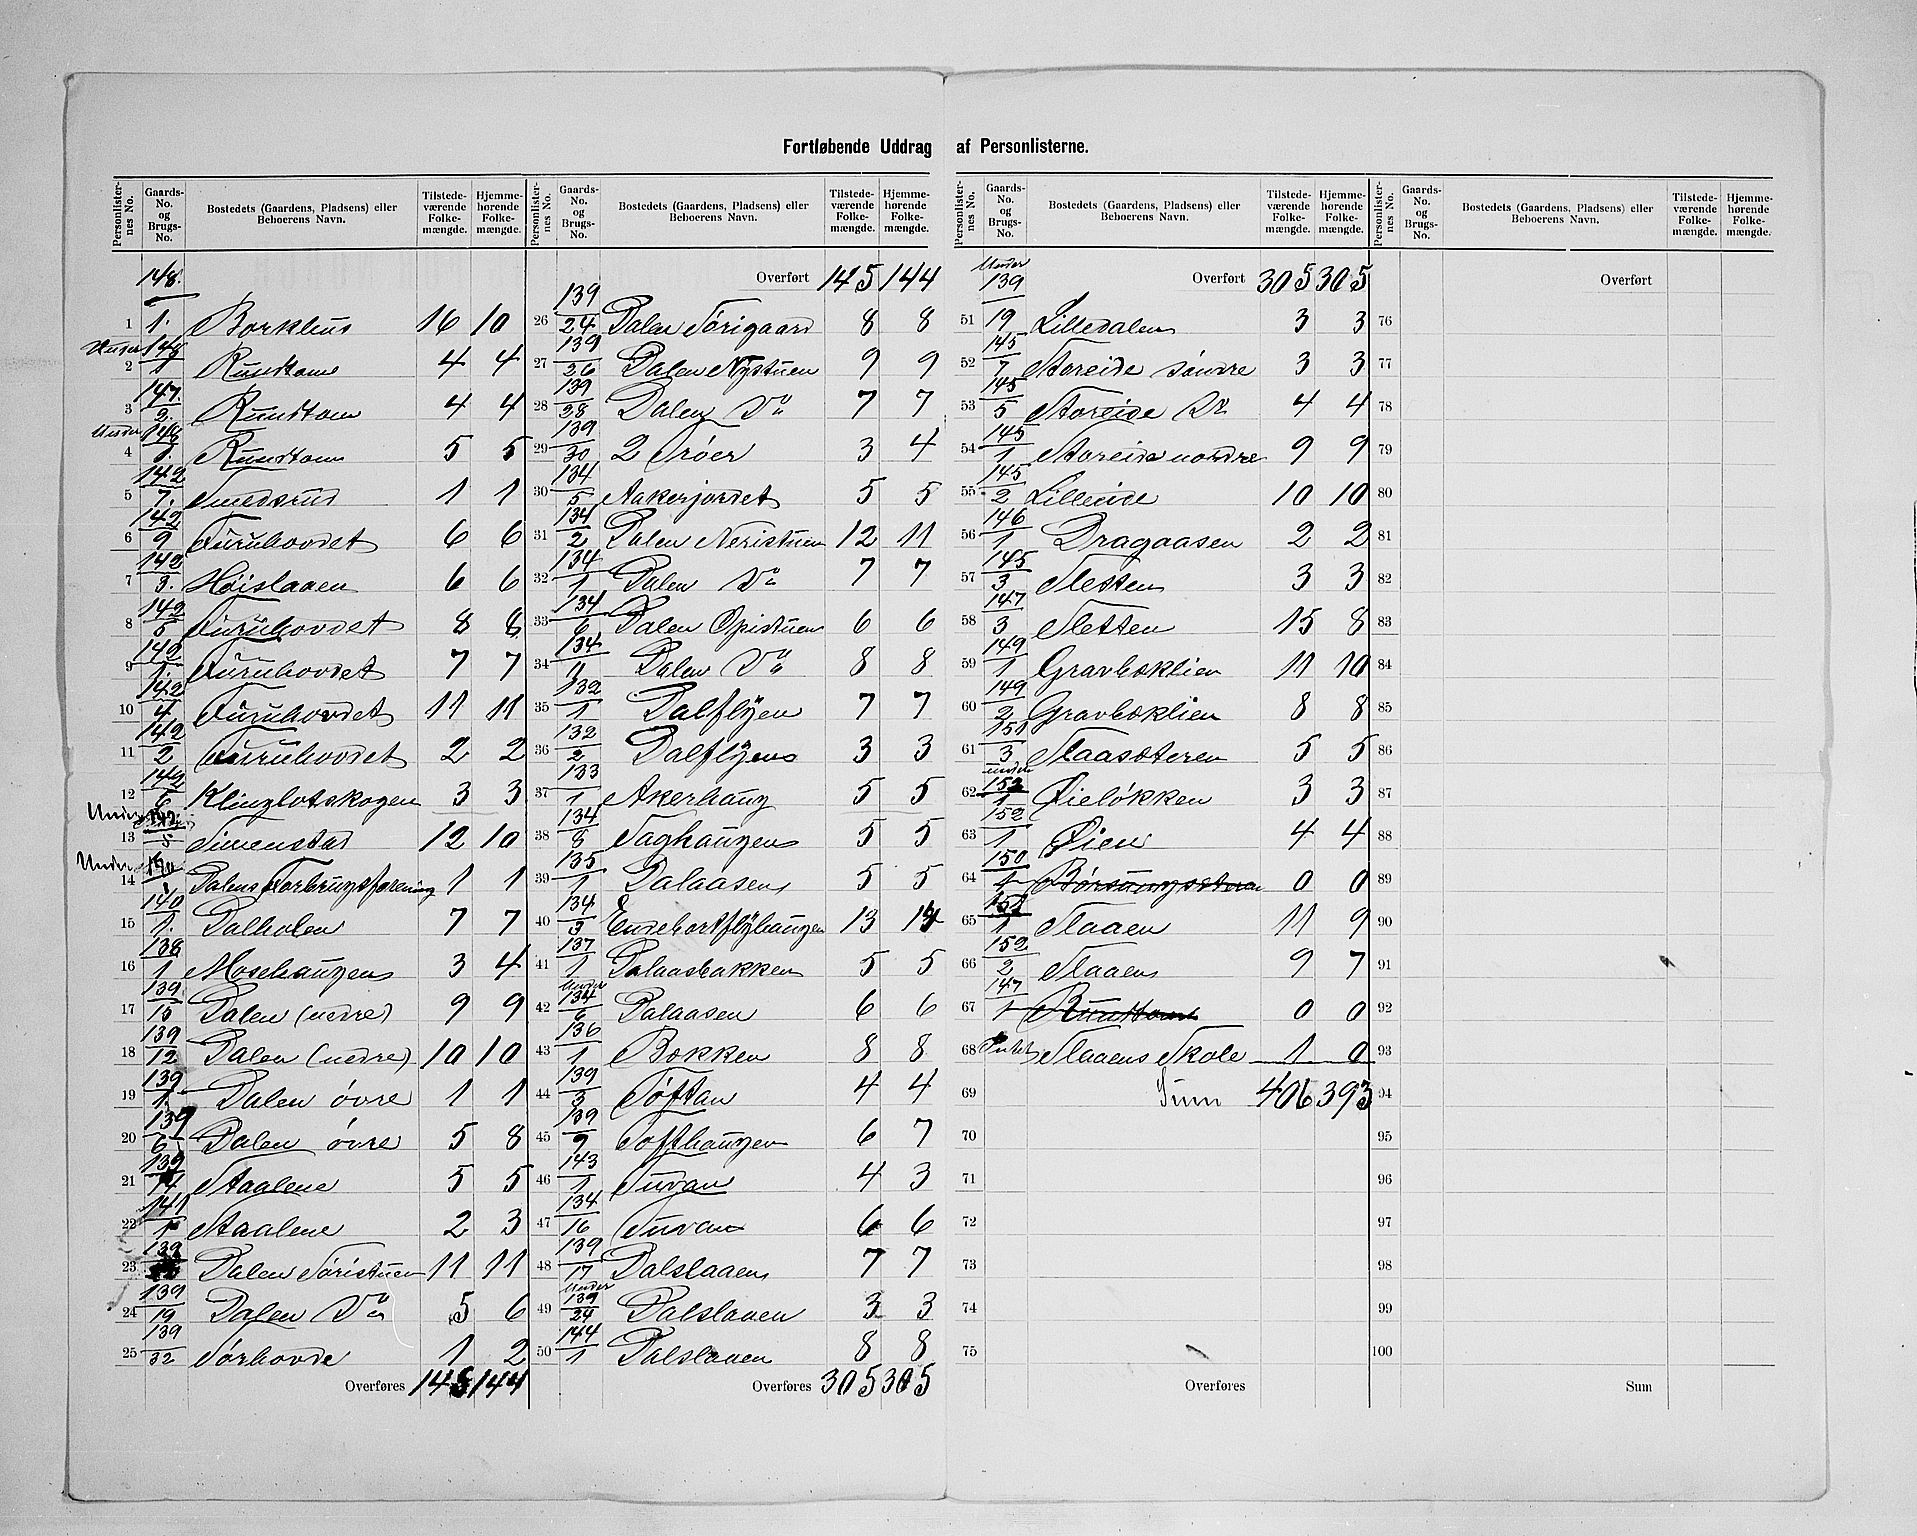 Fortløbende Uddrag af Personlisterne.
Personlister-nes No. | Gaards-No. og Brugs-No. | Bostedets (Gaardens, Pladsens) eller Beboerens Navn. | Tilstede-værende Folke-mængde. | Hjemme-hørende Folke-mængde.
1 148/1. Borkhus 16 10
2 Under 148/1 Rundtom 4 4
3 147./2. Rundtom 4 4
4 Under 148/1. Rundtom 5 5
5 142/7. Smedsrud 1 1
6 142/9 Furuhovdet 6 6
7 142/3. Høislaaen 6 6
8 142/5 Furuhovdet 8 8
9 142/1. Furuhovdet 7 7
10 142/4 Furuhovdet 11 11
11 142/2 Furuhovdet 2 2
12 142/6 Klinglotskogen 3 3
13 Under /5 Simenstad 12 10
14 Under Dalens Forbrugsforening 1 1
15 140/1. Dalholen 7 7
16 138/1 Mosehaugen 3 4
17 139/15 Dalen (nedre) 9 9
18 139/12 Dalen (nedre) 10 10
19 139/1. Dalen øvre 1 1
20 139/6 Dalen øvre 5 8
21 139/14 Staalene 5 5
22 141/1 Staalene 2 3
23 139 Dalen Søristuen 11 11
24 139/19 Dalen Do 5 6
25 139/32 Sørhovde 1 2
Overføres 145 144
Overført 145 144
26 139/24 Dalen Sørigaard 8 8
27 139/26 Dalen Nystuen 9 9
28 139/28 Dalen Do 7 7
29 139/30 2 Trøer 3 4
30 134/5 Aakerjordet 5 5
31 134/2 Dalen Neristuen 12 11
32 134/1 Dalen Do 7 7
33 134/6 Dalen Opistuen 6 6
34 134/11 Dalen Do 8 8
35 132/1 Dalflyen 7 7
36 132/2 Dalflyen 3 3
37 133/1 Akerhaug 5 5
38 134/8 Taghaugen 5 5
39 135/1 Dalaasen 5 5
40 134/3 Endebortflyhaugen 13 14
41 137/1 Dalaasbakken 5 5
42 Under 134/6 Dalaasen 6 6
43 136/1 Bækken 8 8
44 139/3 Toftan 4 4
45 139/9 Tofthaugen 6 7
46 143/1 Tuvan 4 3
47 134/16 Tuvan 6 6
48 139/17 Dalslaaen 7 7
49 Under 139/24 Dalslaaen 3 3
50 144/1 Dalslaaen 8 8
Overføres 305 305
Overført 305 305
51 Under 139/19 Lilledalen 3 3
52 145/7 Storeide søndre 3 3
53 145/5 Storeide Do 4 4
54 145/1 Storeide nordre 9 9
55 145/2 Lilleeide 10 10
56 146/1 Dragaasen 2 2
57 145/3 Sletten 3 3
58 147/3 Sletten 15 8
59 149/1 Gravbæklien 11 10
60 149/2 Gravbæklien 8 8
61 151/3 Slaasæteren 5 5
62 under 152/1 Øieløkken 3 3
63 152/1 Øien 4 4
64 150/1 Børsungsæteren 0 0
65 151/1 Slaaen 11 9
66 152/2 Slaaen 9 7
67 147/1 Rundtom 0 0
68 Intet Slaaens Skole 1 0
69 Sum 406 393
70
71
72
73
74
75
Overføres
Overført
76
77
78
79
80
81
82
83
84
85
86
87
88
89
90
91
92
93
94
95
96
97
98
99
100
Sum